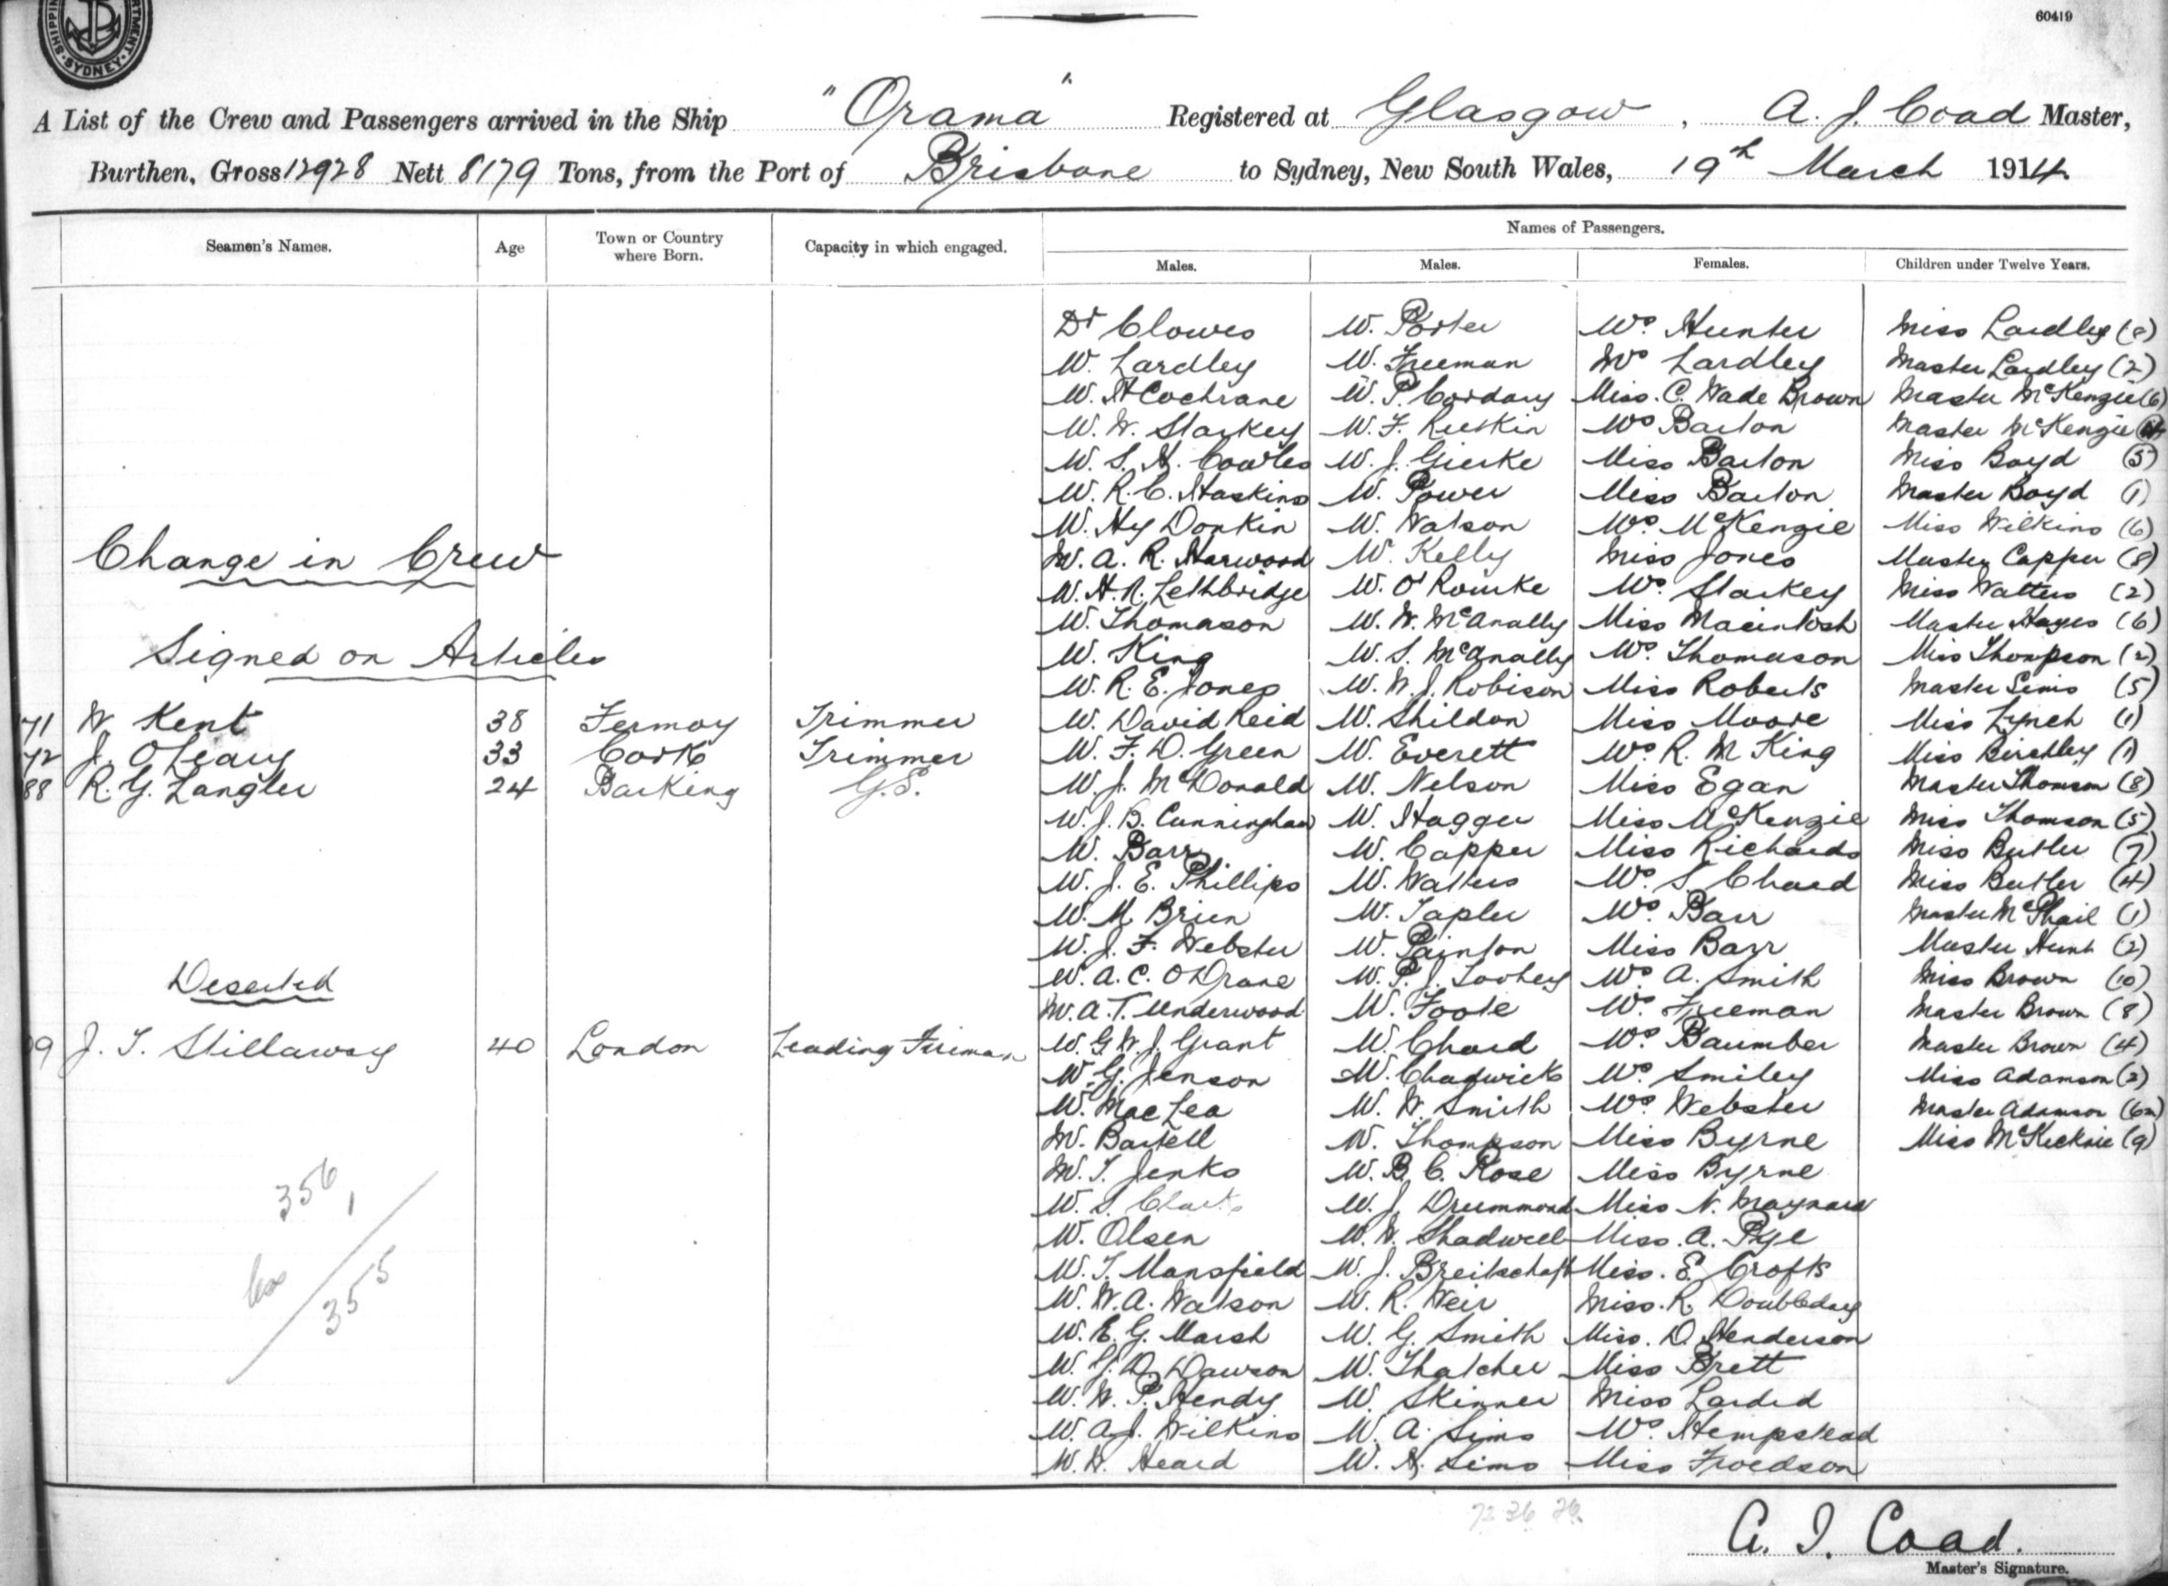 SHIPPING DEPARTMENT SYDNEY
60419
A List of the Crew and Passengers arrived in the Ship "Orama" Registered at Glasgow, A. J. Coad Master,
Burthen, Gross 12928 Nett 8179 Tons, from the Port of Brisbane to Sydney, New South Wales, 19th March 1914
Names of Passengers.
Seamen's Names. Age Town or Country where Born. Capacity in which engaged. Males. Males. Females. Children under Twelve Years.
Dr Clowes Mr. Porter Mrs Hunter Miss Lardley (8)
Mr. Lardley Mr. Freeman Mrs Lardley Master Lardley (2)
Mr. H Cochrane Mr. P. Cordary Miss. C. Wade Brown Master McKenzie (6)
Mr. W. Starkey Mr. F. Ruskin Mrs Barton Master McKenzie
Mr. S. H. Cowles Mr. J. Gierke Miss Barton Miss Boyd (5)
Mr. R. C. Haskins Mr. Power Miss Barton Master Boyd (1)
Mr. Hy Donkin Mr. Watson Mrs. McKenzie Miss Wilkins (6)
Change in Crew Mr. A. R. Harwood Mr. Kelly Miss Jones Master Capper (8)
Mr. H. R. Lethbridge Mr. O'Rourke Mrs. Starkey Miss Watters (2)
Mr. Thomason Mr. W. McAnally Miss Macintosh Master Hayes (6)
Signed on Articles Mr. King Mr. S. McAnally Mrs. Thomason Miss Thompson (2)
Mr. R. E. Jones Mr. W. J. Robison Miss Roberts Master Sims (5)
71 W. Kent 38 Fermoy Trimmer Mr. David Reid Mr. Shildon Miss Moore Miss Lynch (1)
72 J. O'Leary 33 Cork Trimmer Mr. F. D. Green Mr. Everett Mrs. R. M King Miss Birchley (1)
88 R. G. Langler 24 Barking G.S. Mr. J. McDonald Mr. Nelson Miss Egan Master Thomson (8)
Mr. J. B. Cunningham Mr. Hagger Miss McKenzie Miss Thomson (5)
Mr. Barr Mr. Capper Miss Richards Miss Butler (7)
Mr. J. E. Phillips Mr. Watters Mrs. S. Chard Miss Butler (4)
Mr. M Brien Mr. Tapler Mrs. Barr Master McPhail (1)
Mr. J. F. Webster Mr. Painton Miss Barr Master Hunt (2)
Deserted Mr. A. C. O'Drane Mr. P. J. Toohey Mrs. A. Smith Miss Brown (10)
Mr. A. T. Underwood Mr. Foote Mrs. Freeman Master Brown (8)
09 J. T. Stillaway 40 London Leading Fireman Mr. G. W. J. Grant Mr. Chard Mrs. Baumber Master Brown (4)
Mr. G. Jenson Mr. Chadwick Mrs. Smiley Miss Adamson (2)
Mr. MacLea Mr. W. Smith Mrs. Webster Master Adamson (6m)
Mr. Bartell Mr. Thompson Miss Byrne Miss McKechnie (9)
Mr. T. Jenks Mr. B. C. Rose Miss Byrne
356 Mr. S. Clark Mr. J. Drummond Miss N. Maynard
1 Mr. Olsen Mr. W. Shadwell Miss. A. Pye
less Mr. T. Mansfield Mr. J. Breitschaft Miss. E. Crofts
355 Mr. W. A. Watson Mr. R. Weir Miss. R. Doubleday
Mr. E. G. Marsh Mr. G. Smith Miss. D. Henderson
Mr. G. D. Dawson Mr. Thatcher Miss Brett
Mr. W. P. Hendy Mr. Skinner Miss Larded
Mr. A. J. Wilkins Mr. A. Sims Mrs. Hempstead
Mr. W. Heard Mr. H. Sims Miss Froedson
72 36 26
A. J. Coad.
Master's Signature.